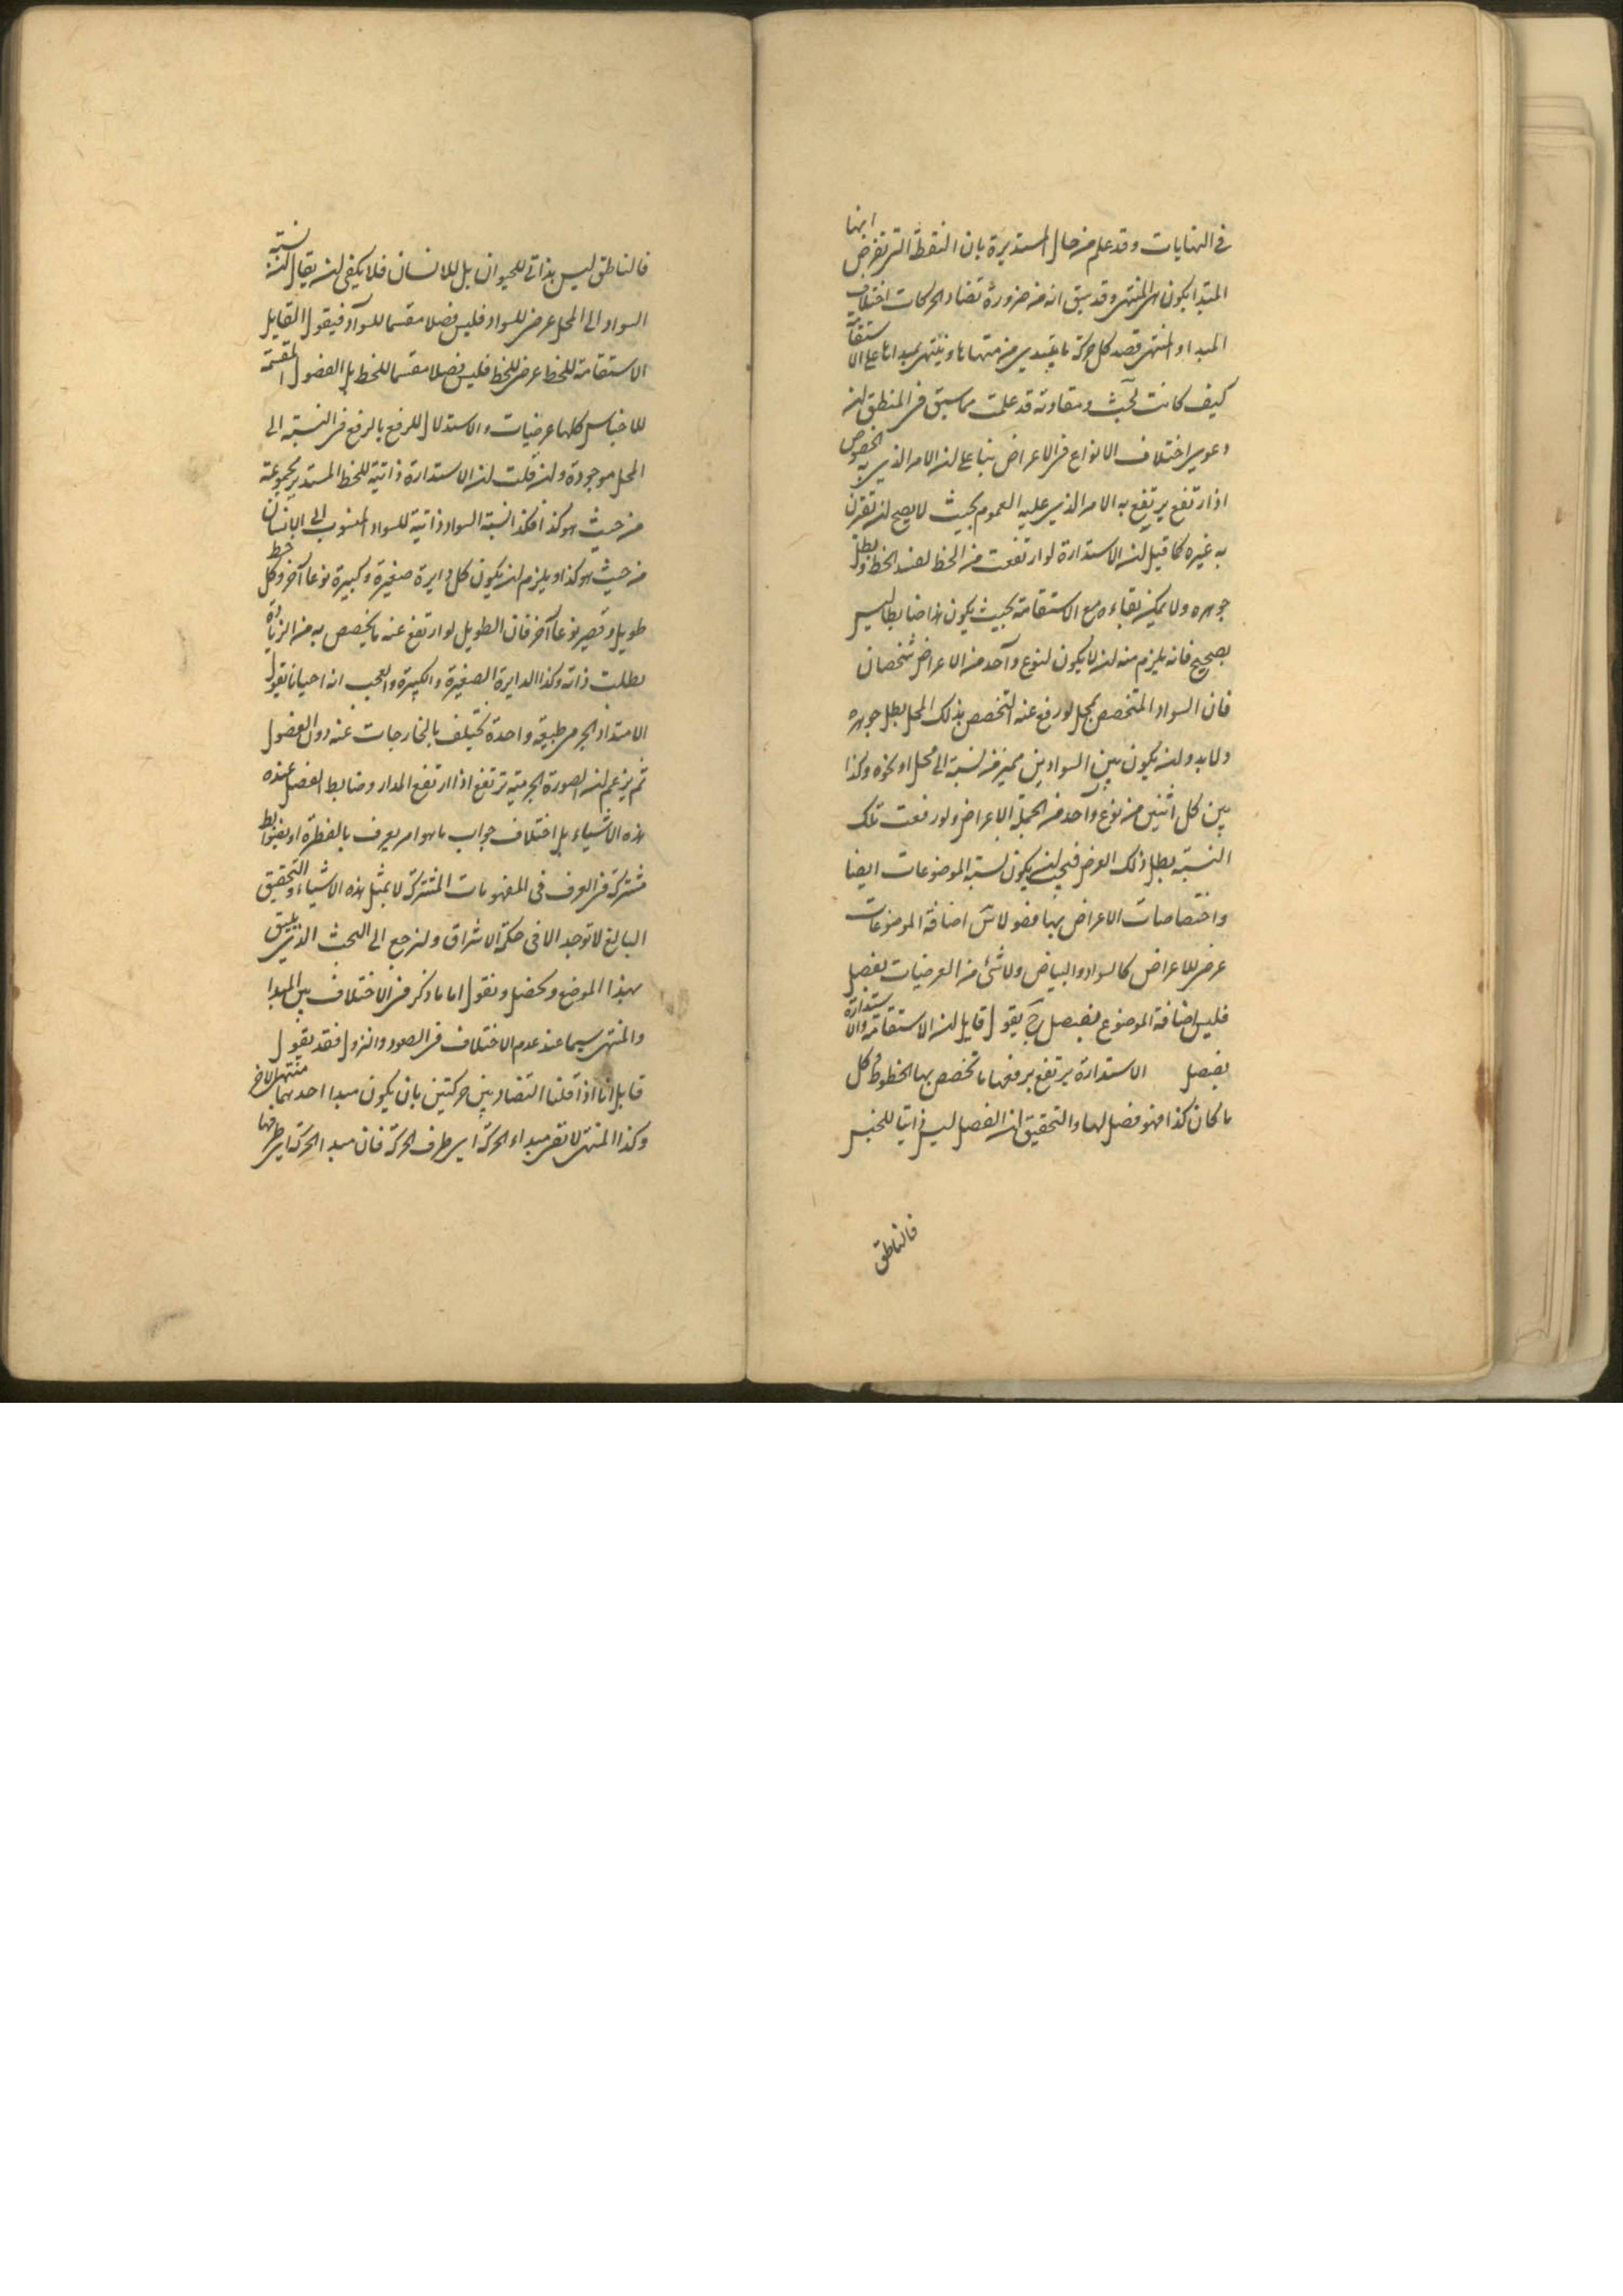 فى النهايات وقد علم من حال المستديرة بان النقطة التى تفرض انها
المبدا يكون هى المنتهى وقد سبق انه من ضرورة تضاد الحركات اختلاف
المبدا والمنتهى قصد كل حركة ما يبتدى من منتهاها وينتهى بمبداها على الاستقامة
كيف كانت بحث ومقاومة قد علمت مما سبق فى المنطق ان
دعوى اختلاف الانواع فى الاعراض بناء على ان الامر الذى به الخصوص
اذا ارتفع يرتفع به الامر الذى عليه العموم بحيث لا يصح ان تقترن
به غيره كما قيل ان الاستدارة لو ارتفعت من الخط لفسد الخط وبطل
جوهره ولا يمكن بقاءه مع الاستقامة بحيث يكون هذا ضابطا ليس
بصحيح فانه يلزم منه ان لا يكون لنوع واحد من الاعراض شخصان
فان السواد المتخصص بمحل لو رفع عنه التخصص بذلك المحل بطل جوهره
ولابد وان يكون بين السوادين مميز من نسبة الى محل او نحوه وكذا
بين كل اثنين من نوع واحد من الجملة الاعراض ولو رفعت تلك
النسبة بطل ذلك العرض فيجب ان يكون نسبة الموضوعات ايضا
واختصاصات الاعراض بها فصولا اضافة الموضوعات
عرض للاعراض كالسواد والبياض ولا شئ من العرضيات بفصل
فليس اضافة الموضوع بفصل يقول قايل ان الاستقامة والاستدارة
بفصل الاستدارة يرتفع برفعها ما تخصص بها الخطوط وكل
ما كان كذا فهو فصل لها والتحقيق ان الفصل ليس ذاتيا للجنس
فالناطق
فالناطق ليس بذاتى للحيوان بل للانسان فلا يكفى ان يقال نسبة
السواد الى المحل عرض للسواد فليس فصلا مقسما للسواد فيقول القايل
الاستقامة للخط عرض للخط فليس فصلا مقسما للخط بل الفصول المقسمة
للاجناس كلها عرضيات والاستدلال للرفع بالرفع فى النسبة الى
المحل موجودة وان قلت ان الاستدارة ذاتية للخط المستدير بمجموعة
من حيث هو كذا فكذا نسبة السواد ذاتية للسواد المنسوب الى الانسان
من حيث هو كذا ويلزم ان يكون كل دايرة صغيرة وكبيرة نوعا آخر وكل خط
طويل وقصير نوعا آخر فان الطويل لو ارتفع عنه ما يخصص به من الزيادة
بطلت ذاته وكذا الدايرة الصغيرة والكبيرة والعجب انه احيانا يقول
الامتداد الجرمى طبيعة واحدة تختلف بالخارجات عنه دون الفصول
ثم يزعم ان الصورة الجرمية ترتفع اذا ارتفع المدار وضابط الفصل عنده
هذه الاشياء بل اختلاف جواب ما هو امر يعرف بالفطرة او بضوابط
مشتركة فى العرف فى المفهومات المشتركة لا بمثل هذه الاشياء والتحقيق
البالغ لا توجد الا فى حكمة الاشراق ولنرجع الى البحث الذى يليق
بهذا الموضع ونقول اما ما ذكر من الاختلاف بين المبدا
والمنتهى سيما عند عدم الاختلاف فى الصعود والنزول فقد يقول
قايل انا اذا قلنا التضاد بين حركتين بان يكون مبدا احدهما منتهى الاخر
وكذا المنتهى لا نعنى بمبداء الحركة اى طرف الحركة فان مبدا الحركة اى طرفها